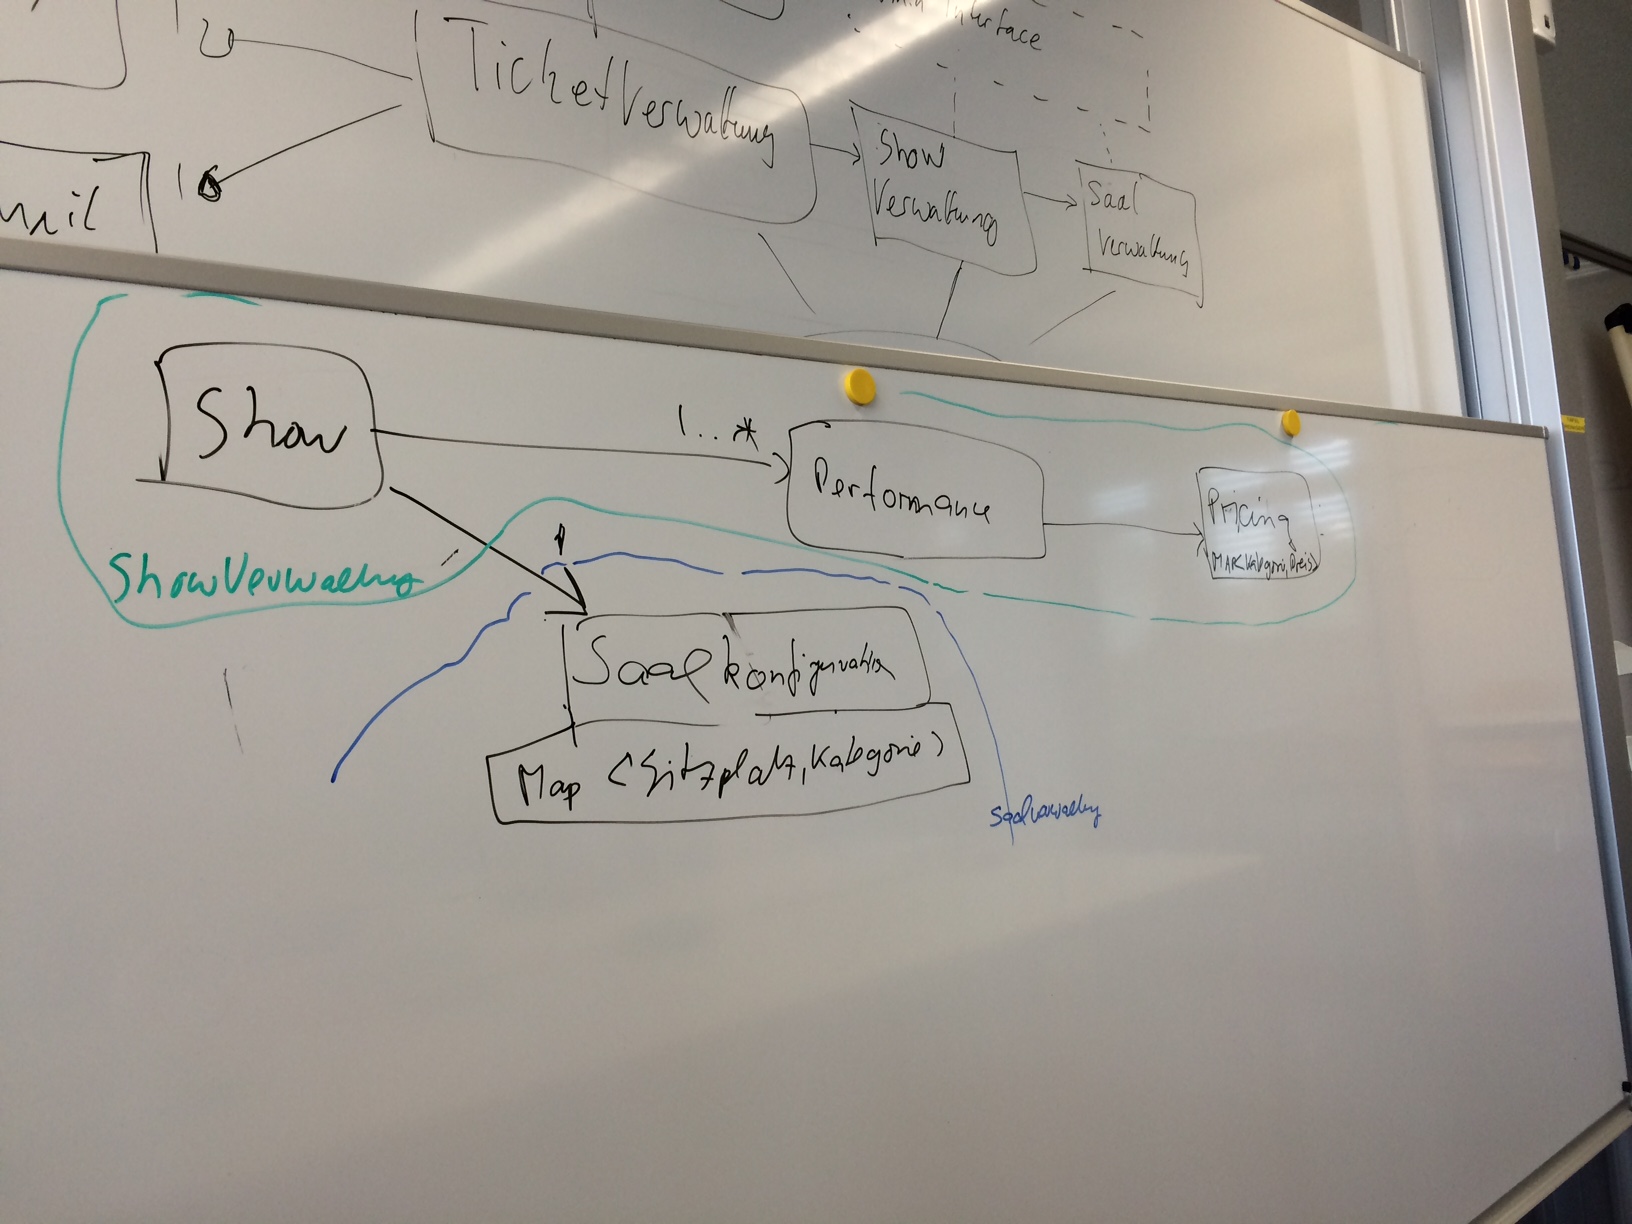 Interface
TicketVerwaltung
Show
Verwaltung
Saal
Verwaltung
Show
1..*
Performance
Pricing
MAP<Kategorie, Preis>
ShowVerwaltung
1
Saalkonfiguration
Map <Sitzplatz, Kategorie>
Saalverwaltung